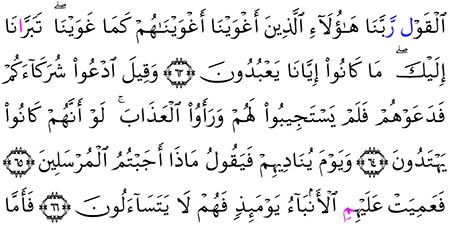 ٱلْقَوْل رَّبَّنَا هَـٰٓؤُلَآءِ ٱلَّذِينَ أَغْوَيْنَآ أَغْوَيْنَـٰهُمْ كَمَا غَوَيْنَا ۖ تَبَرَّانَا
إِلَيْكَ ۖ مَا كَانُوٓا۟ إِيَّانَا يَعْبُدُونَ ۝٦٣ وَقِيلَ ٱدْعُوا۟ شُرَكَآءَكُمْ
فَدَعَوْهُمْ فَلَمْ يَسْتَجِيبُوا۟ لَهُمْ وَرَأَوُا۟ ٱلْعَذَابَ ۚ لَوْ أَنَّهُمْ كَانُوا۟
يَهْتَدُونَ ۝٦٤ وَيَوْمَ يُنَادِيهِمْ فَيَقُولُ مَاذَآ أَجَبْتُمُ ٱلْمُرْسَلِينَ ۝٦٥
فَعَمِيَتْ عَلَيْهِمِ ٱلْأَنۢبَآءُ يَوْمَئِذٍ فَهُمْ لَا يَتَسَآءَلُونَ ۝٦٦ فَأَمَّا